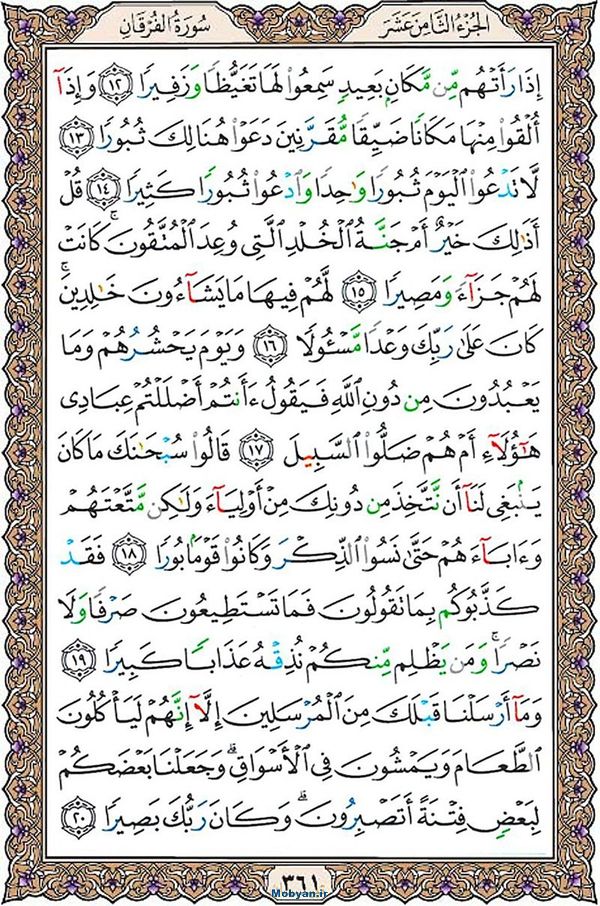 الجُزْءُ الثَّامِنَ عَشَرَ
سُورَةُ الفُرْقَانِ
إِذَا رَأَتْهُم مِّن مَّكَانٍۭ بَعِيدٍ سَمِعُوا۟ لَهَا تَغَيُّظًا وَزَفِيرًا ١٢ وَإِذَآ
أُلْقُوا۟ مِنْهَا مَكَانًا ضَيِّقًا مُّقَرَّنِينَ دَعَوْا۟ هُنَالِكَ ثُبُورًا ١٣
لَّا تَدْعُوا۟ ٱلْيَوْمَ ثُبُورًا وَٰحِدًا وَٱدْعُوا۟ ثُبُورًا كَثِيرًا ١٤ قُلْ
أَذَٰلِكَ خَيْرٌ أَمْ جَنَّةُ ٱلْخُلْدِ ٱلَّتِى وُعِدَ ٱلْمُتَّقُونَ ۚ كَانَتْ
لَهُمْ جَزَآءً وَمَصِيرًا ١٥ لَّهُمْ فِيهَا مَا يَشَآءُونَ خَٰلِدِينَ ۚ
كَانَ عَلَىٰ رَبِّكَ وَعْدًا مَّسْـُٔولًا ١٦ وَيَوْمَ يَحْشُرُهُمْ وَمَا
يَعْبُدُونَ مِن دُونِ ٱللَّهِ فَيَقُولُ ءَأَنتُمْ أَضْلَلْتُمْ عِبَادِى
هَٰٓؤُلَآءِ أَمْ هُمْ ضَلُّوا۟ ٱلسَّبِيلَ ١٧ قَالُوا۟ سُبْحَٰنَكَ مَا كَانَ
يَنۢبَغِى لَنَآ أَن نَّتَّخِذَ مِن دُونِكَ مِنْ أَوْلِيَآءَ وَلَٰكِن مَّتَّعْتَهُمْ
وَءَابَآءَهُمْ حَتَّىٰ نَسُوا۟ ٱلذِّكْرَ وَكَانُوا۟ قَوْمًۢا بُورًا ١٨ فَقَدْ
كَذَّبُوكُم بِمَا تَقُولُونَ فَمَا تَسْتَطِيعُونَ صَرْفًا وَلَا
نَصْرًا ۚ وَمَن يَظْلِم مِّنكُمْ نُذِقْهُ عَذَابًا كَبِيرًا ١٩
وَمَآ أَرْسَلْنَا قَبْلَكَ مِنَ ٱلْمُرْسَلِينَ إِلَّآ إِنَّهُمْ لَيَأْكُلُونَ
ٱلطَّعَامَ وَيَمْشُونَ فِى ٱلْأَسْوَاقِ ۗ وَجَعَلْنَا بَعْضَكُمْ
لِبَعْضٍ فِتْنَةً أَتَصْبِرُونَ ۗ وَكَانَ رَبُّكَ بَصِيرًا ٢٠
٣٦١
Mobyan.ir